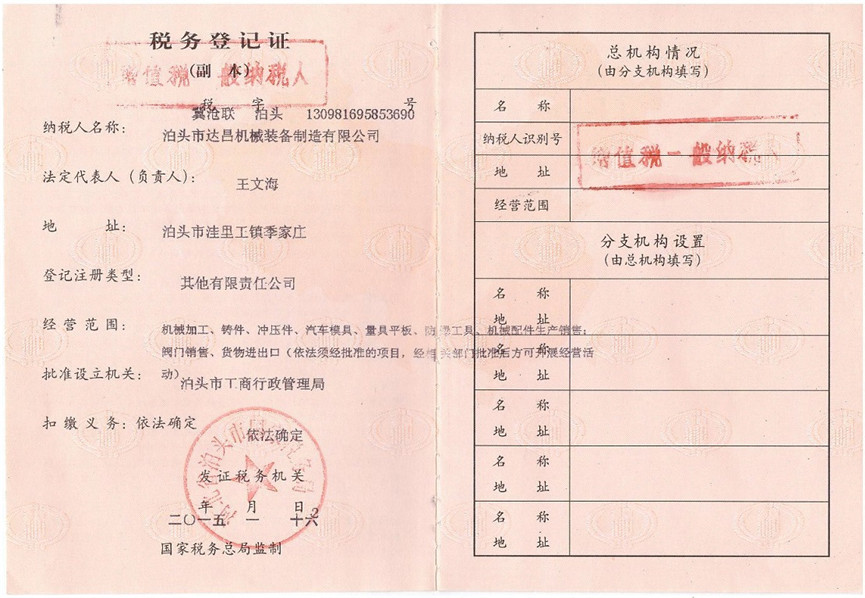 税务登记证
(副 本)
增值税一般纳税人
税 字 号
冀沧联 泊头 130981695853690
纳税人名称：
泊头市达昌机械装备制造有限公司
法定代表人（负责人）：
王文海
地 址：
泊头市洼里王镇季家庄
登记注册类型：
其他有限责任公司
经营范围：
机械加工、铸件、冲压件、汽车模具、量具平板、防爆工具、机械配件生产销售；
阀门销售、货物进出口（依法须经批准的项目，经相关部门批准后方可开展经营活
动）
批准设立机关：
泊头市工商行政管理局
扣缴义务：依法确定
依法确定
发证税务机关
年 月 日
二〇一五 一 十六
国家税务总局监制
总机构情况
(由分支机构填写)
名 称
纳税人识别号
增值税一般纳税人
地 址
经营范围
分支机构设置
(由总机构填写)
名 称
地 址
名 称
地 址
名 称
地 址
名 称
地 址
名 称
地 址